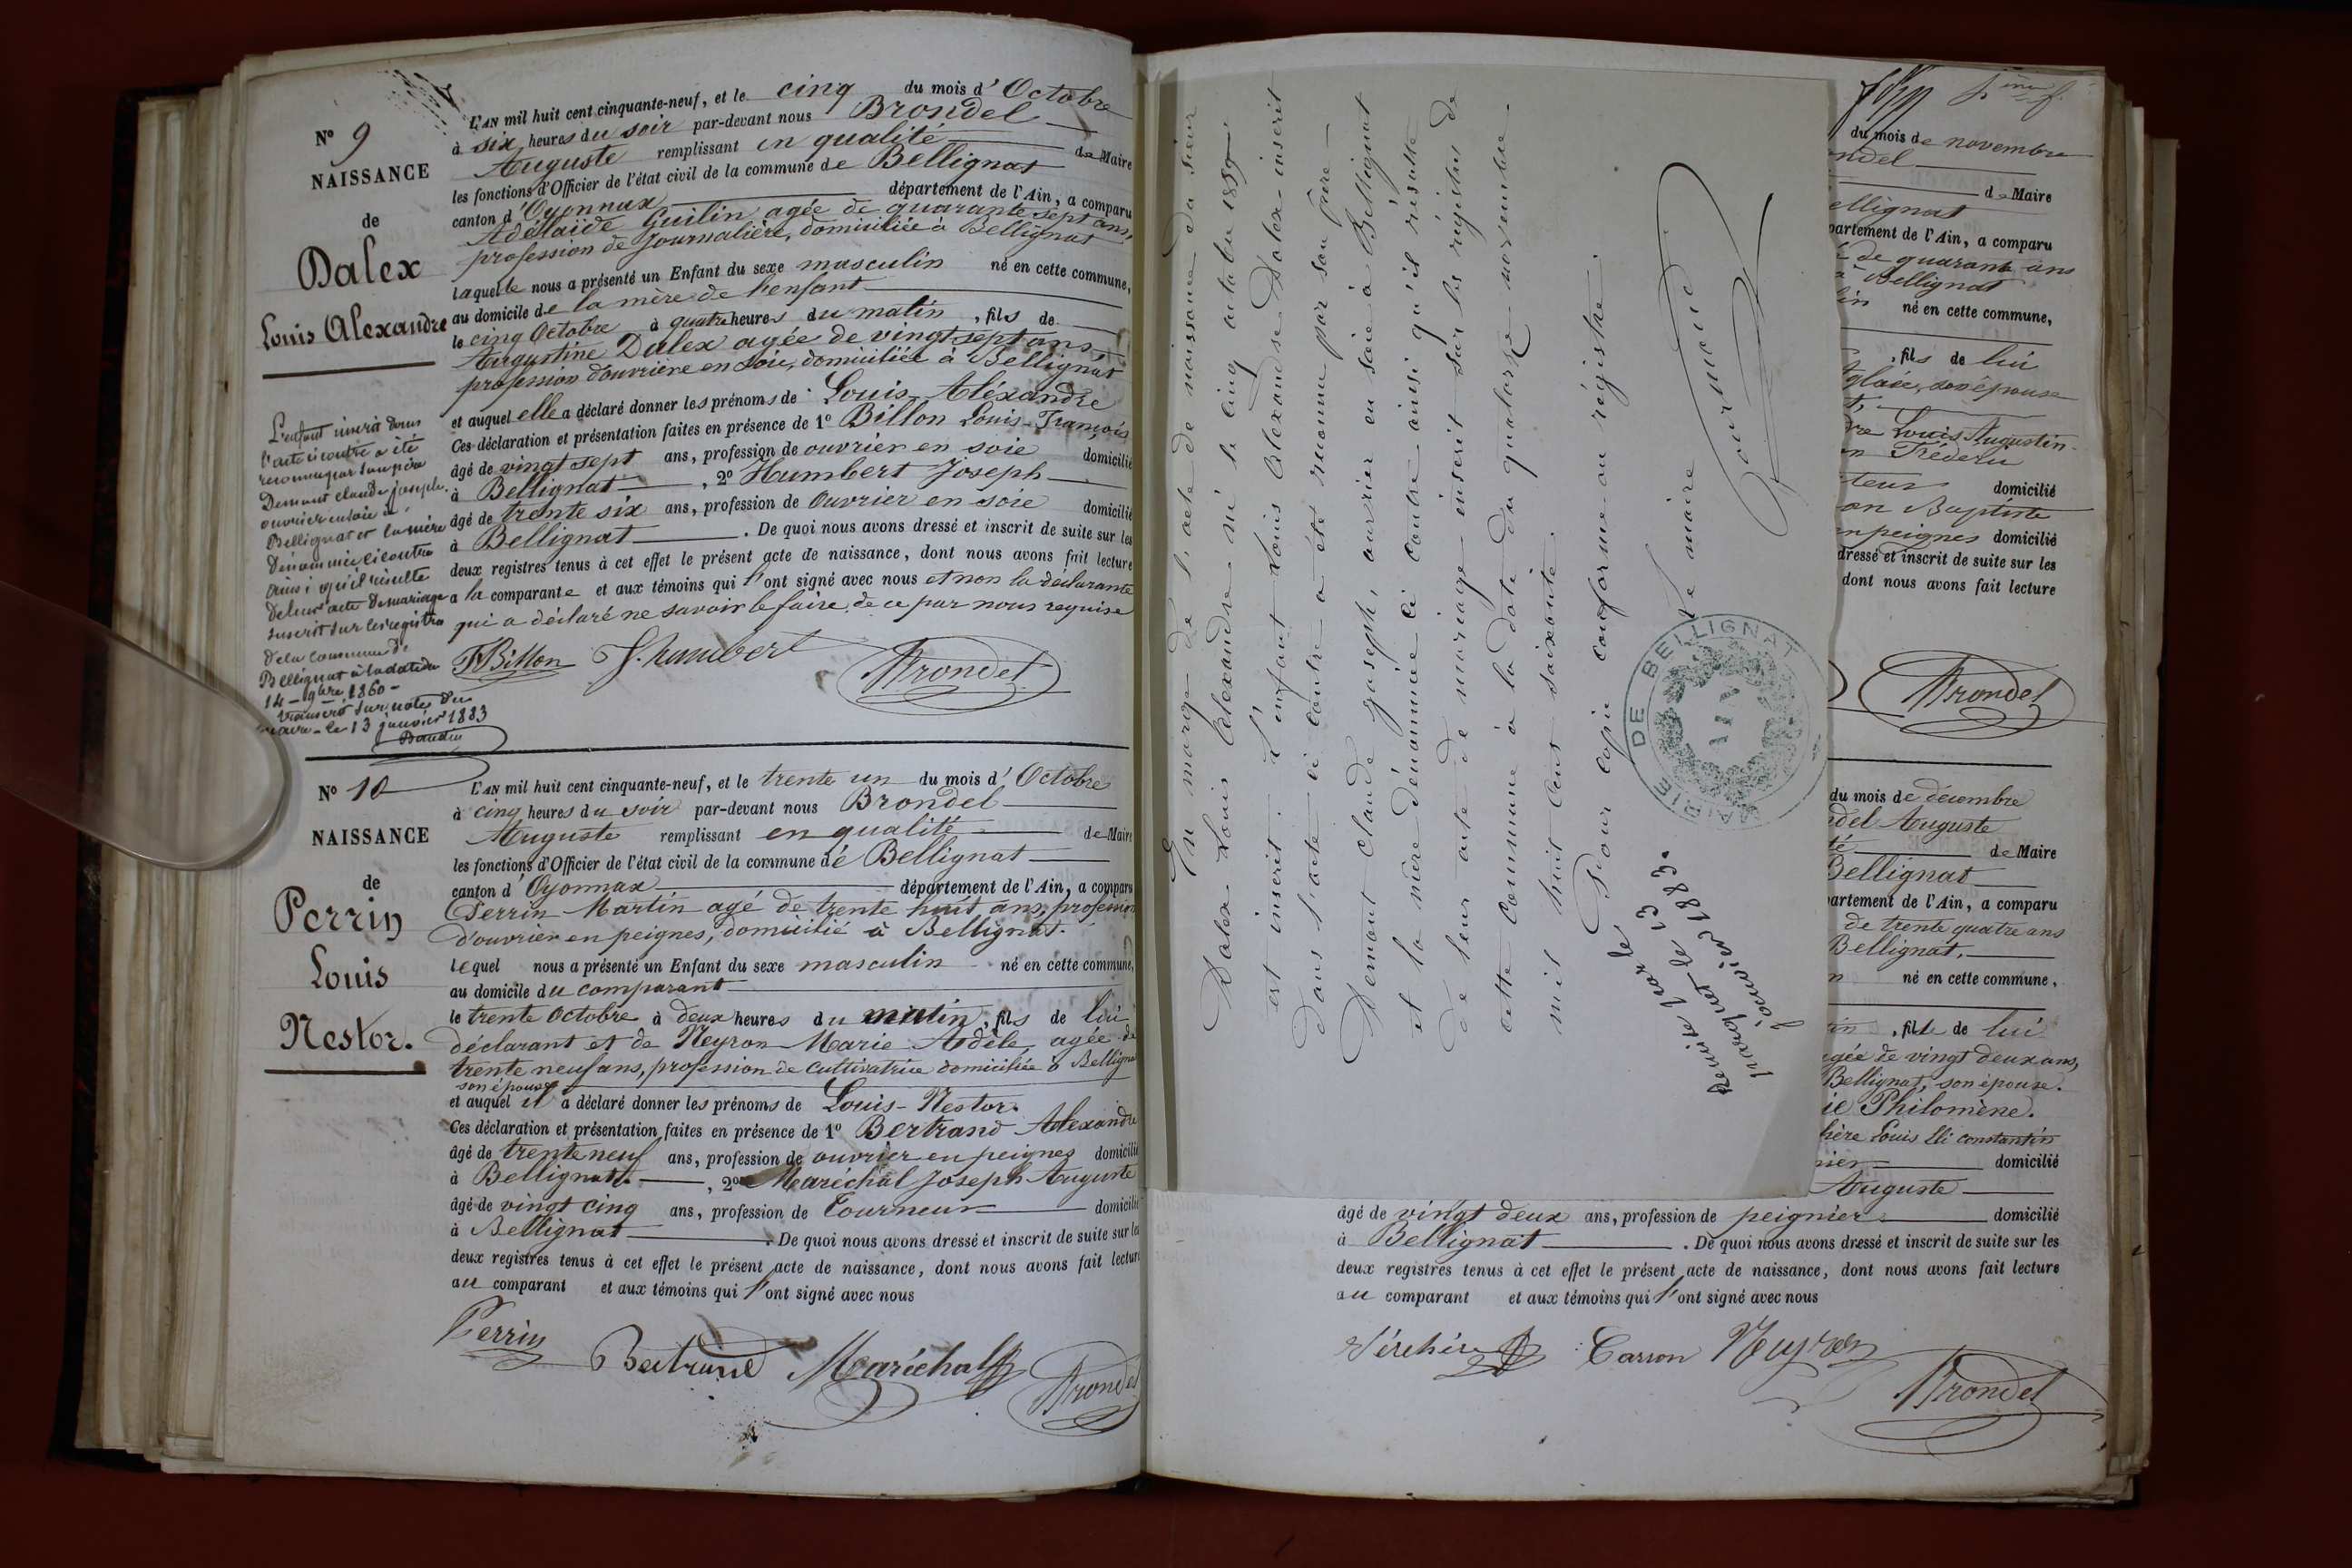 N° 9
NAISSANCE
de
Dalex
Louis Alexandre
L'enfant inscrit dans
l'acte ci contre a été
reconnu par son père
Demont claude joseph
ouvrier en soie à
Bellignat et la mère
Dénommée ci contre
ainsi qu'il résulte
De leur acte De mariage
inscrit sur les registres
De la commune de
Bellignat à la date du
14 - 9bre 1860 -
Transcrit sur notes Du
maire - le 13 janvier 1883
L'AN mil huit cent cinquante-neuf, et le cinq du mois d'Octobre
à six heures du soir par-devant nous Brondel
Auguste remplissant en qualité de Maire
les fonctions d'Officier de l'état civil de la commune de Bellignat
canton d'Oyonnax département de l'Ain, a comparu
Adélaïde Guilin agée de quarante sept ans,
profession de Journalière, domiciliée à Bellignat
laquelle nous a présenté un Enfant du sexe masculin né en cette commune,
au domicile de la mère de l'enfant
le cinq Octobre à quatre heures du matin, fils de
Augustine Dalex agée de vingt sept ans
profession d'ouvrière en soie, domiciliée à Bellignat
et auquel elle a déclaré donner les prénoms de Louis Aléxandre
Ces déclaration et présentation faites en présence de 1° Billon Louis-François
âgé de vingt sept ans, profession de ouvrier en soie domicilié
à Bellignat, 2° Humbert Joseph
âgé de trente six ans, profession de ouvrier en soie domicilié
à Bellignat. De quoi nous avons dressé et inscrit de suite sur les
deux registres tenus à cet effet le présent acte de naissance, dont nous avons fait lecture
a la comparante et aux témoins qui l'ont signé avec nous et non la déclarante
qui a déclaré ne savoir le faire de ce par nous requise
Billon J. humbert Brondel
N° 10
NAISSANCE
de
Perrin
Louis
Nestor.
L'AN mil huit cent cinquante-neuf, et le trente un du mois d'Octobre
à cinq heures du soir par-devant nous Brondel
Auguste remplissant en qualité de Maire
les fonctions d'Officier de l'état civil de la commune de Bellignat
canton d'Oyonnax département de l'Ain, a comparu
Perrin Martin agé de trente huit ans, profession
d'ouvrier en peignes, domicilié à Bellignat.
lequel nous a présenté un Enfant du sexe masculin né en cette commune,
au domicile du comparant
le trente Octobre à deux heures du matin, fils de lui
déclarant et de Neyron Marie Adèle, agée de
trente neuf ans, profession de cultivatrice domiciliée à Bellignat
son épouse
et auquel il a déclaré donner les prénoms de Louis-Nestor.
Ces déclaration et présentation faites en présence de 1° Bertrand Alexandre
âgé de trente neuf ans, profession de ouvrier en peignes domicilié
à Bellignat, 2° Maréchal Joseph Auguste
âgé de vingt cinq ans, profession de Tourneur domicilié
à Bellignat. De quoi nous avons dressé et inscrit de suite sur les
deux registres tenus à cet effet le présent acte de naissance, dont nous avons fait lecture
au comparant et aux témoins qui l'ont signé avec nous
Perrin Bertrand Maréchal Brondel
En marge de l'acte de naissance du sieur
Dalex Louis Alexandre né le cinq octobre 1859
est inscrit : L'enfant Louis Alexandre Dalex inscrit
dans l'acte ci contre a été reconnu par son père
Demont Claude Joseph, ouvrier en soie à Bellignat
et la mère dénommée ci contre ainsi qu'il résulte
de leur acte de mariage inscrit sur les régistres de
cette commune à la date du quatorze novembre
mil huit cent soixante.
Pour copie conforme au régistre.
Le maire
Gourmand
MAIRIE DE BELLIGNAT
AIN
Remise par le
parquet le 13
janvier 1883.
du mois de novembre
ondel
de Maire
ellignat
partement de l'Ain, a comparu
de quarante ans
à Bellignat
lin né en cette commune,
, fils de lui
son épouse
Louis Augustin
teur domicilié
an Baptiste
en peignes domicilié
dressé et inscrit de suite sur les
dont nous avons fait lecture
Brondel
du mois de décembre
ndel Auguste
té de Maire
Bellignat
partement de l'Ain, a comparu
de trente quatre ans
Bellignat,
n né en cette commune,
, fille de lui
agée de vingt deux ans,
Bellignat, son épouse.
ie Philomène.
Louis Eli constantin
nier domicilié
Auguste
âgé de vingt deux ans, profession de peignier domicilié
à Bellignat. De quoi nous avons dressé et inscrit de suite sur les
deux registres tenus à cet effet le présent acte de naissance, dont nous avons fait lecture
au comparant et aux témoins qui l'ont signé avec nous
Carron Neyron
Brondel